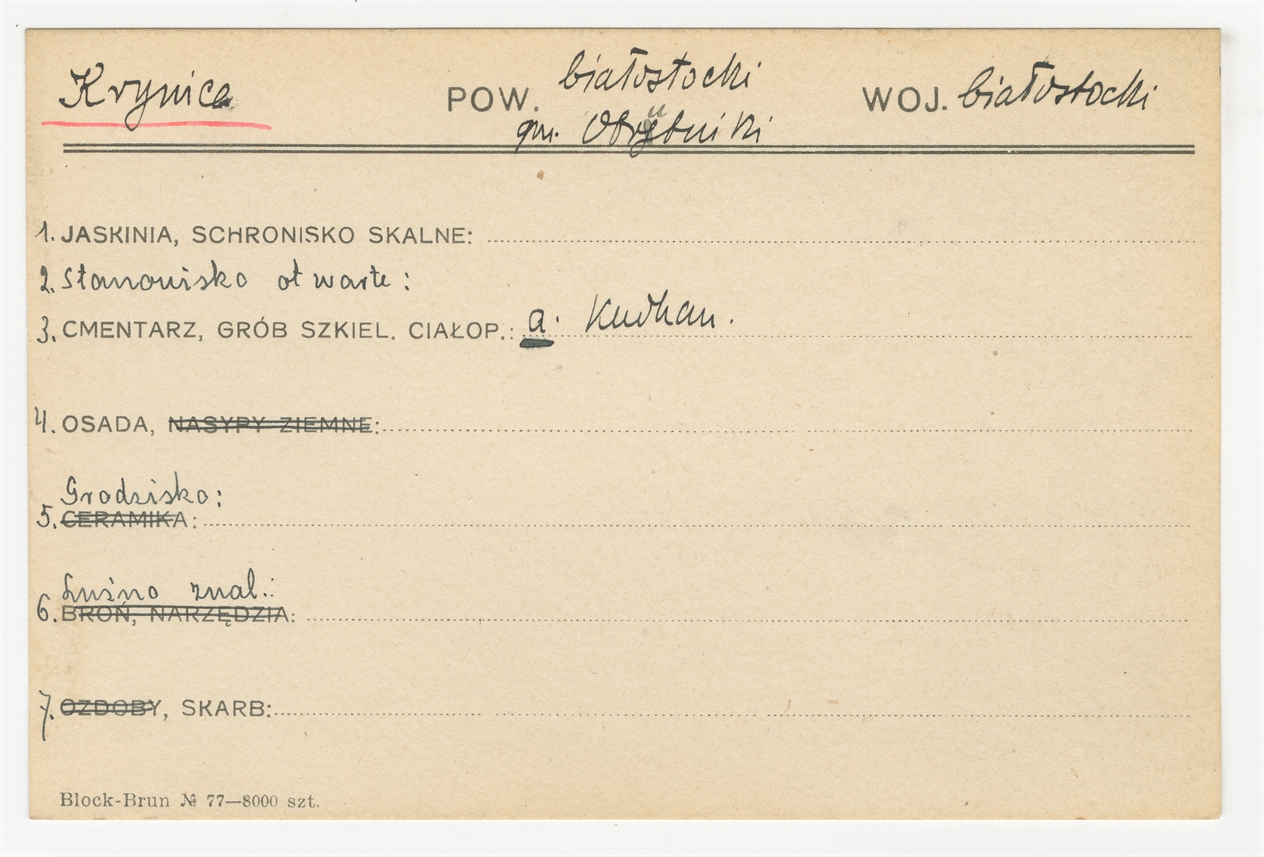 Krynica POW. białostocki WOJ. białostocki
gm. Obrębniki
1. JASKINIA, SCHRONISKO SKALNE:
2. Stanowisko otwarte:
3. CMENTARZ, GRÓB SZKIEL. CIAŁOP.: a. Kurhan.
4. OSADA, NASYPY ZIEMNE:
Grodzisko:
5. CERAMIKA:
Luźno znal.:
6. BROŃ, NARZĘDZIA:
7. OZDOBY, SKARB:
Block-Brun № 77—8000 szt.